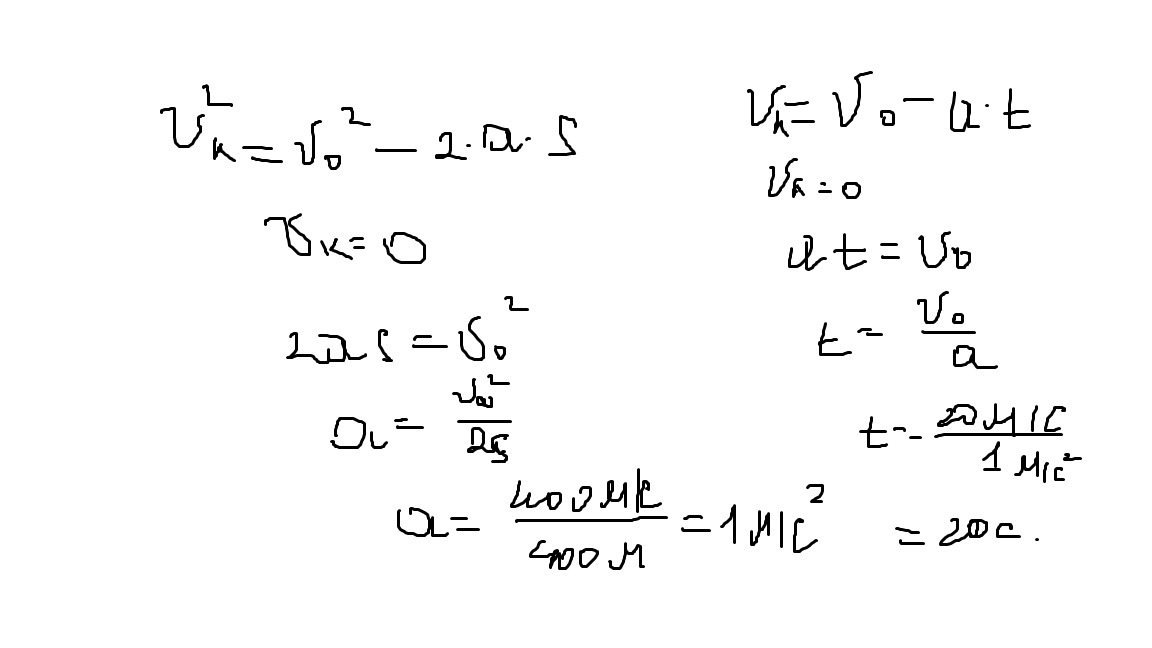 υₖ² = υ₀² − 2·a·S
υₖ = 0
2aS = υ₀²
a = υ₀² / 2S
a = 400 м/с / 400 м = 1 м/с²
υₖ = υ₀ − a·t
υₖ = 0
at = υ₀
t = υ₀ / a
t = 20 м/с / 1 м/с²
= 20 с.